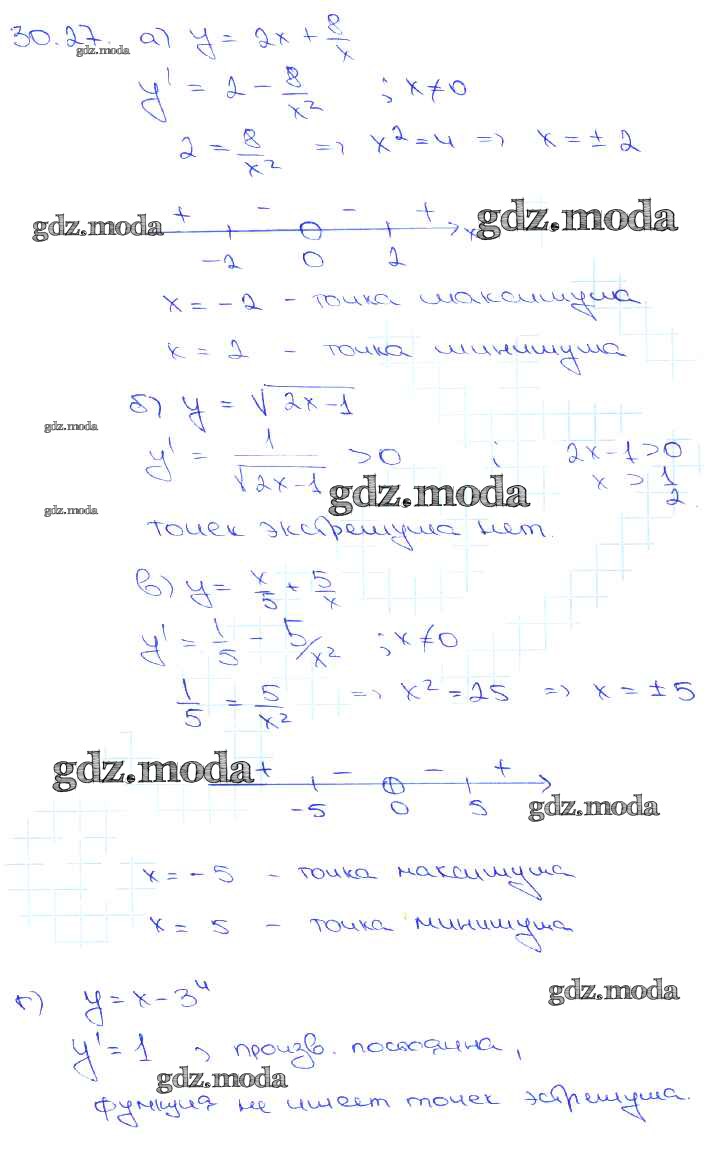 30.27. а) y = 2x + 8/x
gdz.moda
y' = 2 - 8/x² ; x ≠ 0
2 = 8/x² => x² = 4 => x = ± 2
+ - - +
gdz.moda gdz.moda
x
-2 0 2
x = -2 - точка максимума
x = 2 - точка минимума
б) y = √2x-1
gdz.moda
y' = 1/√2x-1 > 0 ; 2x-1 > 0
x > 1/2
gdz.moda
gdz.moda
точек экстремума нет.
в) y = x/5 + 5/x
y' = 1/5 - 5/x² ; x ≠ 0
1/5 = 5/x² => x² = 25 => x = ± 5
gdz.moda + - - +
-5 0 5
gdz.moda
x = -5 - точка максимума
x = 5 - точка минимума
г) y = x - 3⁴
gdz.moda
y' = 1 , произв. постоянна,
gdz.moda
функция не имеет точек эстремума.